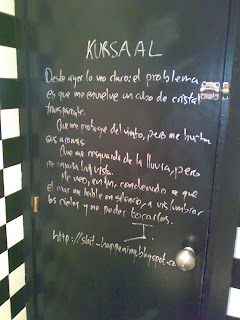 KURSAAL
Desde ayer lo veo claro: el problema
es que me envuelve un cubo de cristal
transparente.
Que me protege del viento, pero me hurta
sus aromas.
Que me resguarda de la lluvia, pero
me empaña la vista.
Me veo, en fin, condenado a que
el mar me hable en silencio, a vislumbrar
los cielos y no poder tocarlos.
I.
http://shit_happening.blogspot.co